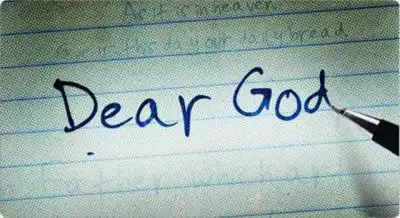 As it is in heaven.
Give us this day our daily bread
Dear God
Father